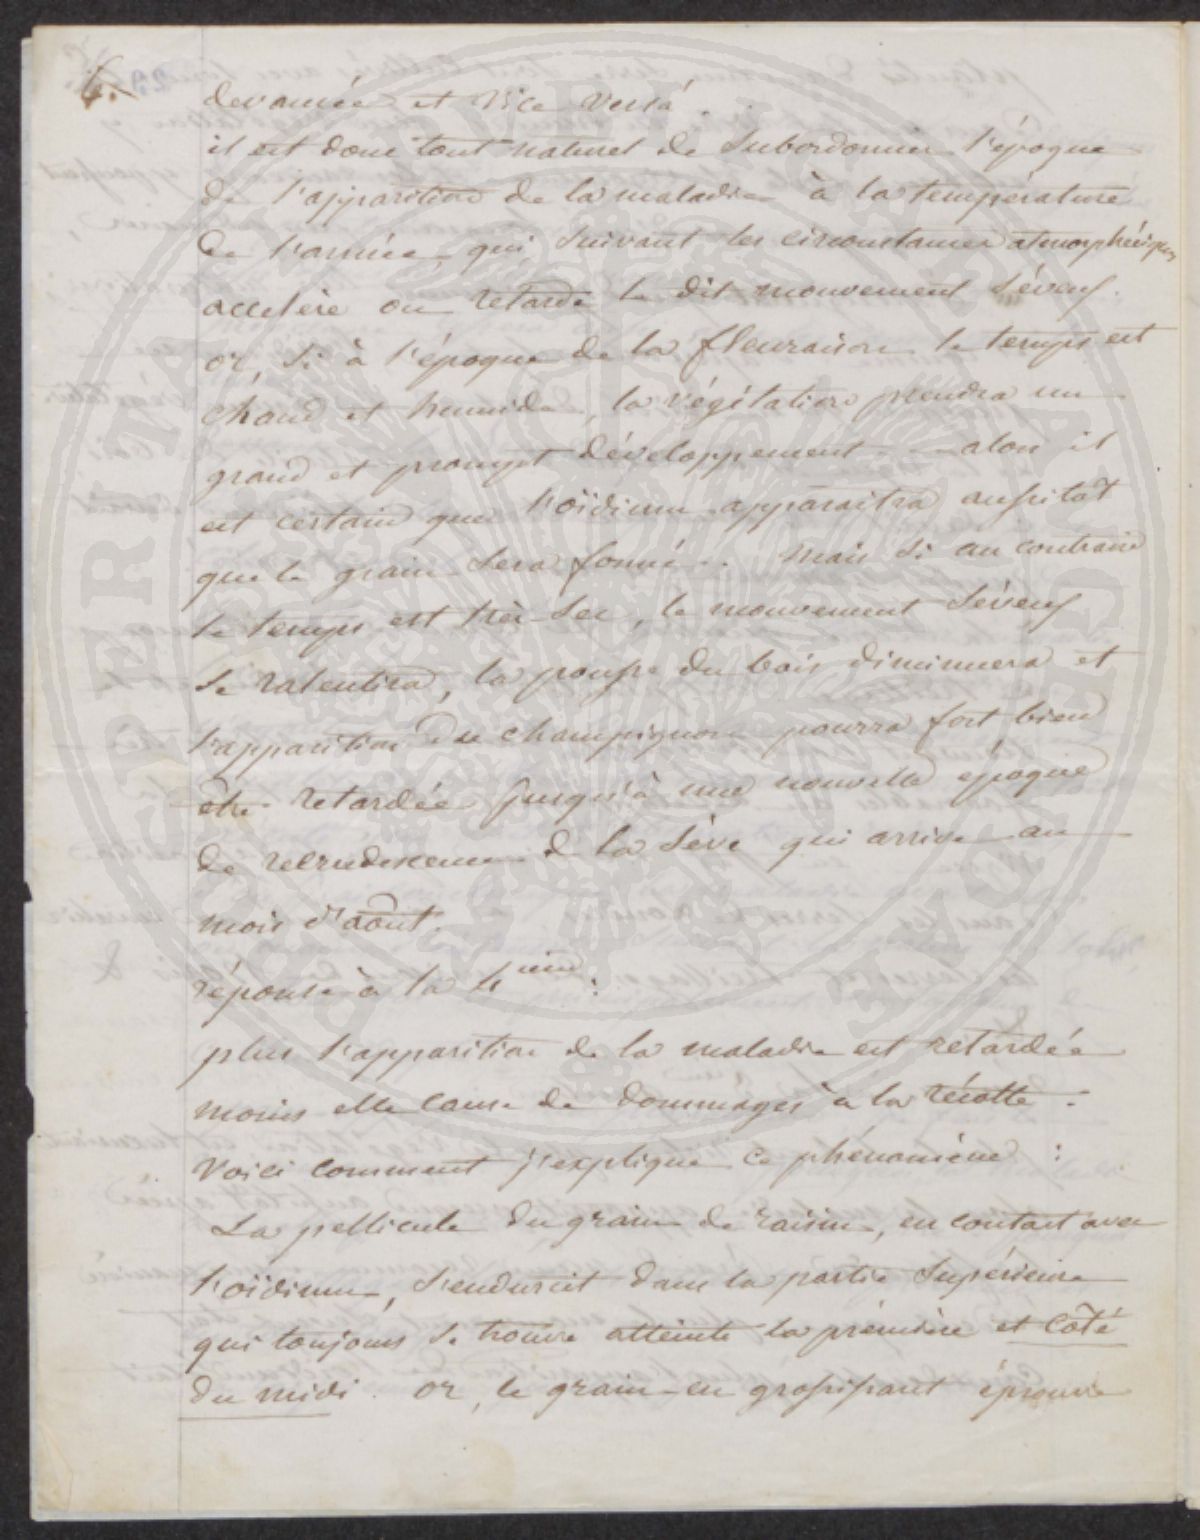 6.
devancée et vice versâ.
il est donc tout naturel de subordonner l'époque
de l'apparition de la maladie à la température
de l'année, qui, suivant les circonstances atmosphériques
accelère ou retarde le dit mouvement séveux.
or, si à l'époque de la fleuraison le temps est
chaud et humide, la végétation prendra un
grand et prompt développement - alors il
est certain que l'oïdium apparaitra aussitôt
que le grain sera formé. . mais si au contraire
le temps est très-sec, le mouvement séveux
se ralentira, la pousse du bois diminuera et
l'apparition du champignon pourra fort bien
être retardée jusqu'à une nouvelle époque
de recrudescence de la sève qui arrive au
mois d'août.
réponse à la 4ième:
plus l'apparition de la maladie est retardée
moins elle cause de dommages à la récolte.
Voici comment j'explique ce phénomène :
La pellicule du grain de raisin, en contact avec
l'oïdium, s'endurcit dans la partie supérieure
qui toujours se trouve atteinte la première et côté
du midi. or, le grain en grossissant éprouve
PROSPERITATI PUBLICAE AUGENDAE